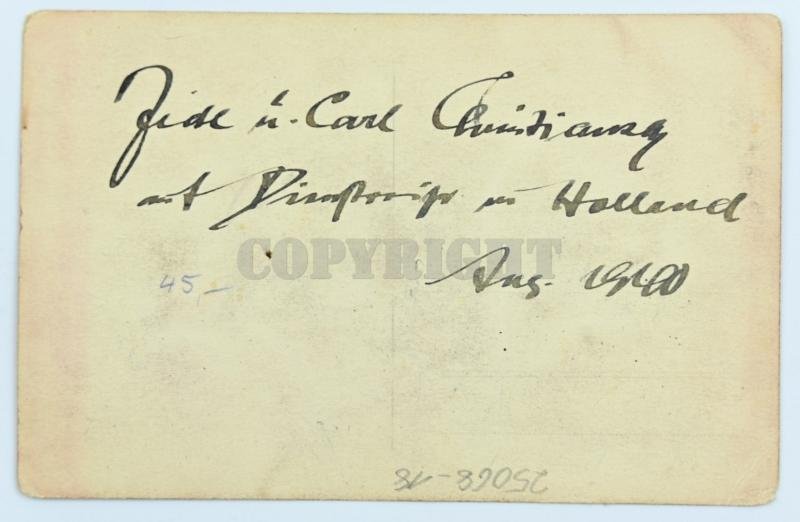 u. Carl Christiansen
auf Dienstreise in Holland
COPYRIGHT
Aug. 1940
45,-
25068-18